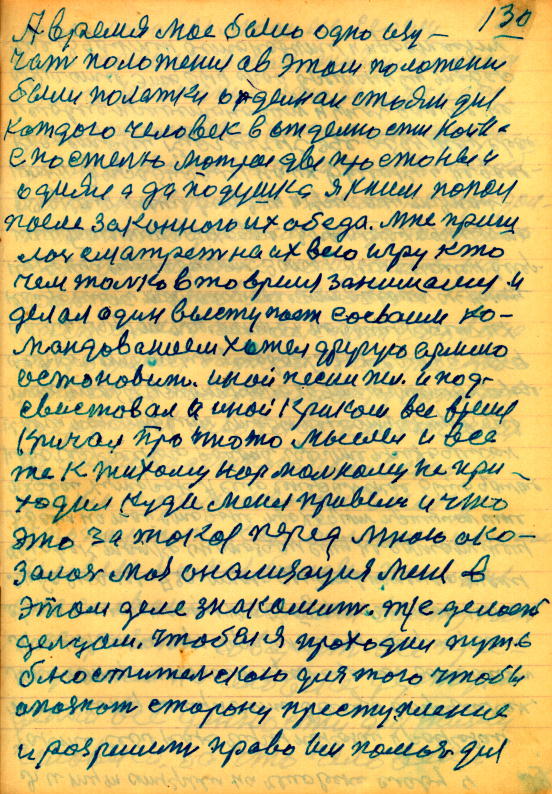 130
А время мое было одно изу-
чат положения а в этом положени
были полатки отделнаи стояли для
каждого человек в отделности койк-
с постелью мотрас две простоны и
одияла да подушка я к ним попал
после законного их обеда. мне приш
лос сматрет на их всю игру кто
чем толко в то время занимался и
делал один выступает со своим ко-
мондованием хотел другую армию
остоновит. иной песни пел. и под-
свистовал а иной криком все время
кричал про что то мыслил и все
же к тихому нормолному не при-
ходил куда меня привели и что
это за такое перед мною око-
залос моя онализация меня в
этом деле знакомит. же делает
делцом. чтобы я проходил путь
блюстителского для того чтобы
опознат сторону преступление
и розрешит право им помоч для